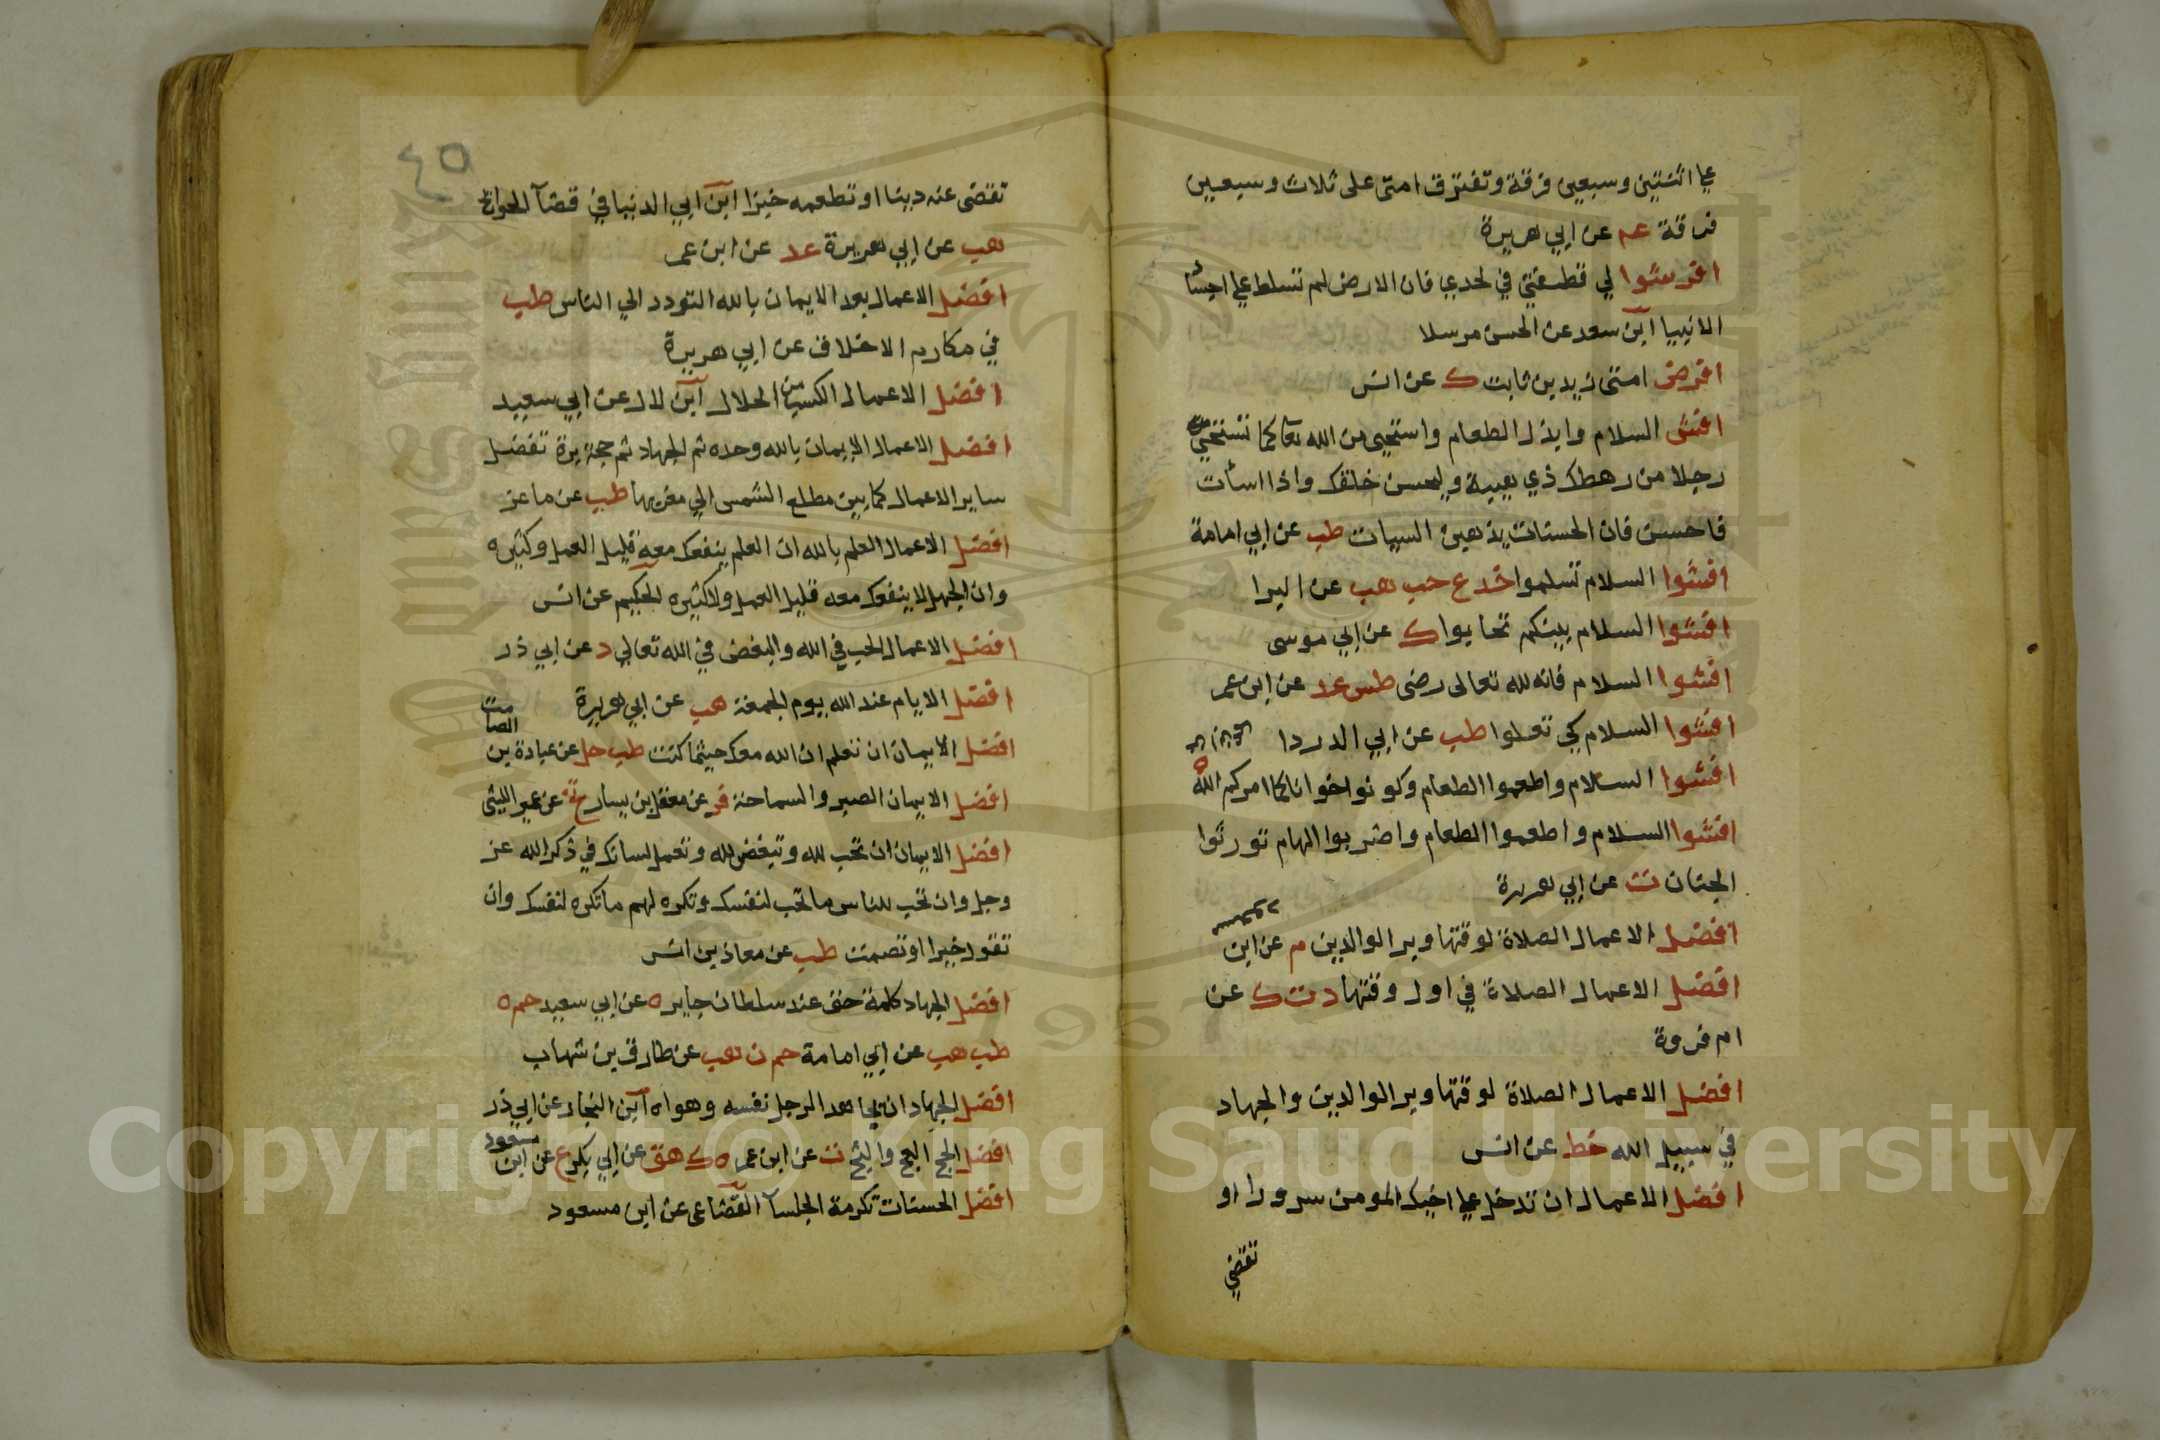 على اثنتين وسبعين فرقة وتفترق امتى على ثلاث وسبعين
فرقة عم عن ابي هريرة
افرشوا لي قطيفتي في لحدي فان الارض لم تسلط على اجساد
الانبيا ابن سعد عن الحسن مرسلا
افرض امتى زيد بن ثابت ك عن انس
افش السلام وابذل الطعام واستحيى من الله تعا كما تستحيي
رجلا من رهطك ذي هيية وليحسن خلقك واذا اسأت
فاحسن فان الحسنات يذهبن السيات طب عن ابي امامة
افشوا السلام تسلموا خد ع حب هب عن البرا
افشوا السلام بينكم تحابوا ك عن ابي موسى
افشوا السلام فانه لله تعالى رضى طس عد عن ابن عمر
افشوا السلام كي تعلوا طب عن ابي الدردا
افشوا السلام واطعموا الطعام وكونوا اخوانا كما امركم الله ه
افشوا السلام واطعموا الطعام واضربوا الهام تورثوا
الجنان ت عن ابي هريرة
افضل الاعمال الصلاة لوقتها وبر الوالدين م عن ابن مسعود
افضل الاعمال الصلاة في اول وقتها د ت ك عن
ام فروة
افضل الاعمال الصلاة لوقتها وبر الوالدين والجهاد
في سبيل الله خط عن انس
افضل الاعمال ان تدخل على اخيك المومن سرورا او
تقضي
٤٥
تقضى عنه دينا او تطعمه خبزا ابن ابي الدنيا في قضآ الحوائج
هب عن ابي هريرة عد عن ابن عمر
افضل الاعمال بعد الايمان بالله التودد الي الناس طب
في مكارم الاخلاق عن ابي هريرة
افضل الاعمال الكسب من الحلال ابن لال عن ابي سعيد
افضل الاعمال الايمان بالله وحده ثم الجهاد ثم حجة برة تفضل
ساير الاعمال كما بين مطلع الشمس الي مغربها طب عن ماعز
افضل الاعمال العلم بالله ان العلم ينفعك معه قليل العمل وكثيره
وان الجهل لا ينفعك معه قليل العمل ولا كثيره الحكيم عن انس
افضل الاعمال الحب في الله والبغض في الله تعالي د عن ابي ذر
افضل الايام عند الله يوم الجمعة هب عن ابي هريرة
افضل الايمان ان تعلم ان الله معك حيثما كنت طب حل عن عبادة بن الصامت
افضل الايمان الصبر والسماحة فر عن معقل بن يسار تخ عن عمير الليثى
افضل الايمان ان تحب لله وتبغض لله وتعمل لسانك في ذكر الله عز
وجل وان تحب للناس ما تحب لنفسك وتكره لهم ما تكره لنفسك وان
تقول خيرا او تصمت طب عن معاذ بن انس
افضل الجهاد كلمة حق عند سلطان جاير ه عن ابي سعيد حم ه
طب هب عن ابي امامة حم ن هب عن طارق بن شهاب
افضل الجهاد ان يجاهد الرجل نفسه وهواه ابن النجار عن ابي ذر
افضل الحج العج والثج ت عن ابن عمر ه ك هق عن ابي بكر ع عن ابن مسعود
افضل الحسنات تكرمة الجلسآ القضاعى عن ابن مسعود
Copyright © King Saud University
1957